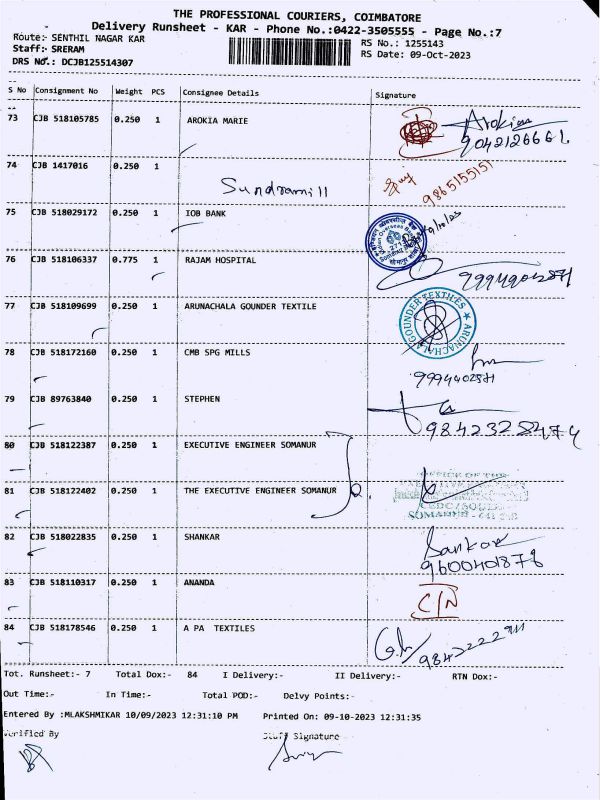 THE PROFESSIONAL COURIERS, COIMBATORE
Delivery Runsheet - KAR - Phone No.:0422-3505555 - Page No.:7
Route:- SENTHIL NAGAR KAR
RS No.: 1255143
Staff:- SRERAM
RS Date: 09-Oct-2023
DRS No.: DCJB125514307
S No Consignment No Weight PCS Consignee Details Signature
73 CJB 518105785 0.250 1 AROKIA MARIE
9042126661
74 CJB 1417016 0.250 1
Sundramill
9865155151
75 CJB 518029172 0.250 1 IOB BANK
76 CJB 518106337 0.775 1 RAJAM HOSPITAL
77 CJB 518109699 0.250 1 ARUNACHALA GOUNDER TEXTILE
ARUNACHALA GOUNDER TEXTILES
78 CJB 518172160 0.250 1 CMB SPG MILLS
79 CJB 89763840 0.250 1 STEPHEN
9842328474
80 CJB 518122387 0.250 1 EXECUTIVE ENGINEER SOMANUR
OFFICE OF THE
81 CJB 518122402 0.250 1 THE EXECUTIVE ENGINEER SOMANUR
82 CJB 518022835 0.250 1 SHANKAR
Sankar
9600401876
83 CJB 518110317 0.250 1 ANANDA
C/N
84 CJB 518178546 0.250 1 A PA TEXTILES
Tot. Runsheet:- 7 Total Dox:- 84 I Delivery:- II Delivery:- RTN Dox:-
Out Time:- In Time:- Total POD:- Delvy Points:-
Entered By :MLAKSHMIKAR 10/09/2023 12:31:10 PM Printed On: 09-10-2023 12:31:35
Verified By Staff Signature